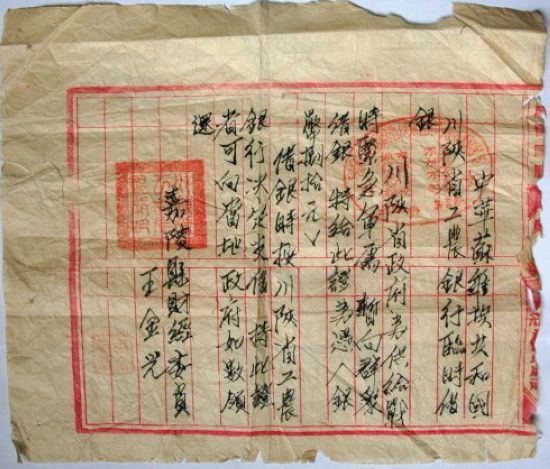 中華蘇維埃共和國
川陝省工農銀行臨時借
銀
川陝省政府為供給戰
時緊急軍需 暫向群衆
借銀 特給此證為憑 人銀
幣捌拾元
借銀時按川陝省工農
銀行決定兌借 持此證
者可向當地政府如數領
還
嘉陵縣財經委員
王金光